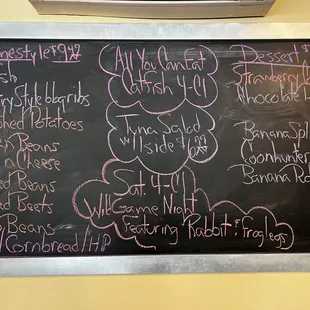 mestyle $9.49
Style bbq ribs
Potatoes
Beans
n Cheese
Beans
Beets
Beans
Cornbread/HP
All You Can Eat
Catfish 4-Cl
Tuna Salad
w/ 1 side
Sat. 4-Cl
Wild Game Night
Featuring Rabbit & Froglegs
Dessert
Strawberry
Chocolate
Banana Spl
Coonhunter
Banana